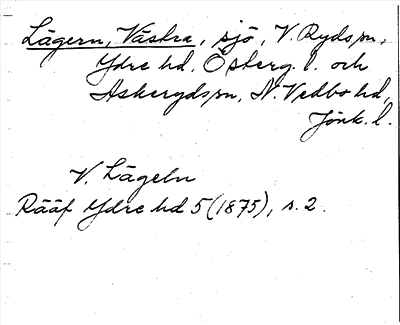 Lägern, Västra, sjö, V. Ryds sn,
Ydre hd, Österg. l. och
Askeryds sn, N. Vedbo hd,
Jönk. l.
V. Lägeln
Rääf Ydre hd 5 (1875), s. 2.